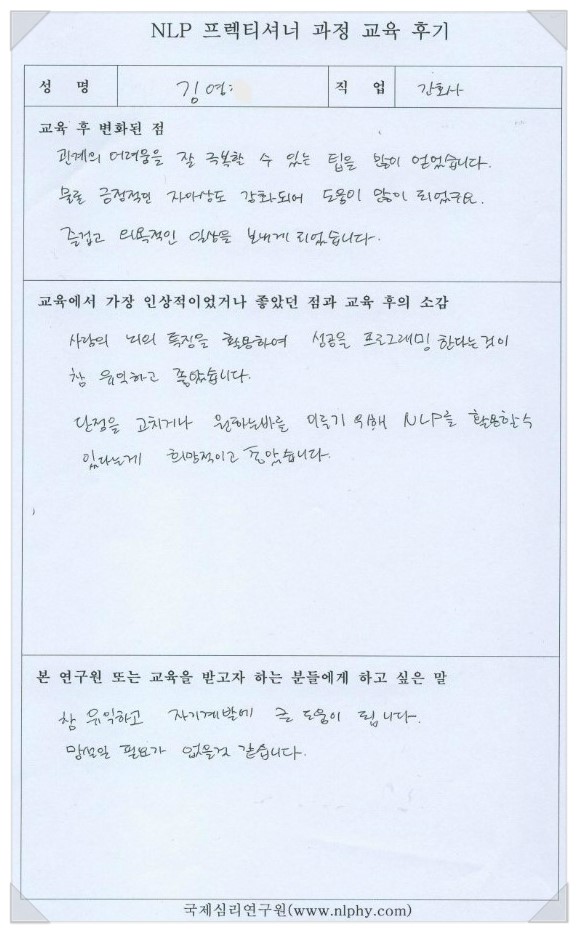 NLP 프렉티셔너 과정 교육 후기
성 명 김연 직 업 간호사
교육 후 변화된 점
관계의 어려움을 잘 극복할 수 있는 팁을 많이 얻었습니다.
물론 긍정적인 자아상도 강화되어 도움이 많이 되었구요.
즐겁고 의욕적인 일상을 보내게 되었습니다.
교육에서 가장 인상적이었거나 좋았던 점과 교육 후의 소감
사람의 뇌의 특징을 활용하여 성공을 프로그래밍 한다는것이
참 유익하고 좋았습니다.
단점을 고치거나 원하는바를 이루기 위해 NLP를 활용할수
있다는게 희망적이고 좋았습니다.
본 연구원 또는 교육을 받고자 하는 분들에게 하고 싶은 말
참 유익하고 자기계발에 큰 도움이 됩니다.
망설일 필요가 없을것 같습니다.
국제심리연구원(www.nlphy.com)